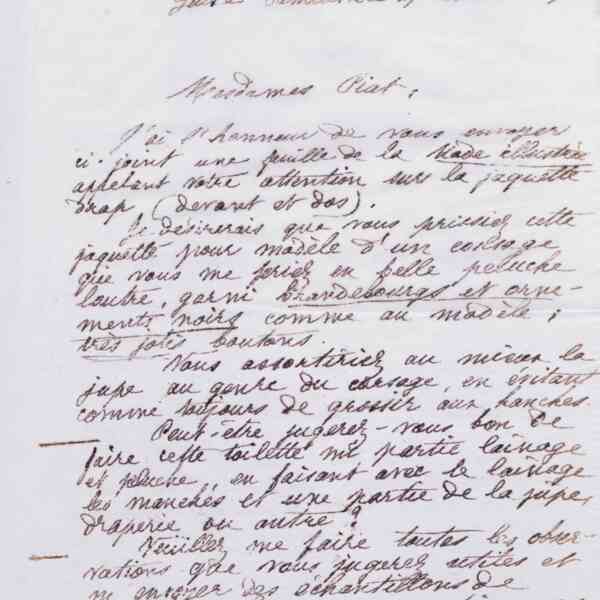 Mesdames Piat,
J'ai l'honneur de vous envoyer
ci-joint une feuille de la Mode illustrée
appelant votre attention sur la jaquette
drap (devant et dos).
Je désirerais que vous prissiez cette
jaquette pour modèle d'un corsage
que vous me feriez en belle peluche
loutre, garni brandebourgs et orne-
ments noirs comme au modèle ;
très jolis boutons.
Vous assortiriez au mieux la
jupe au genre du corsage, en évitant
comme toujours de grossir aux hanches.
Peut-être jugerez-vous bon de
faire cette toilette mi partie lainage
et peluche, en faisant avec le lainage
les manches et une partie de la jupe,
draperie ou autre ?
Veuillez me faire toutes les obser-
vations que vous jugerez utiles et
m'envoyer des échantillons de